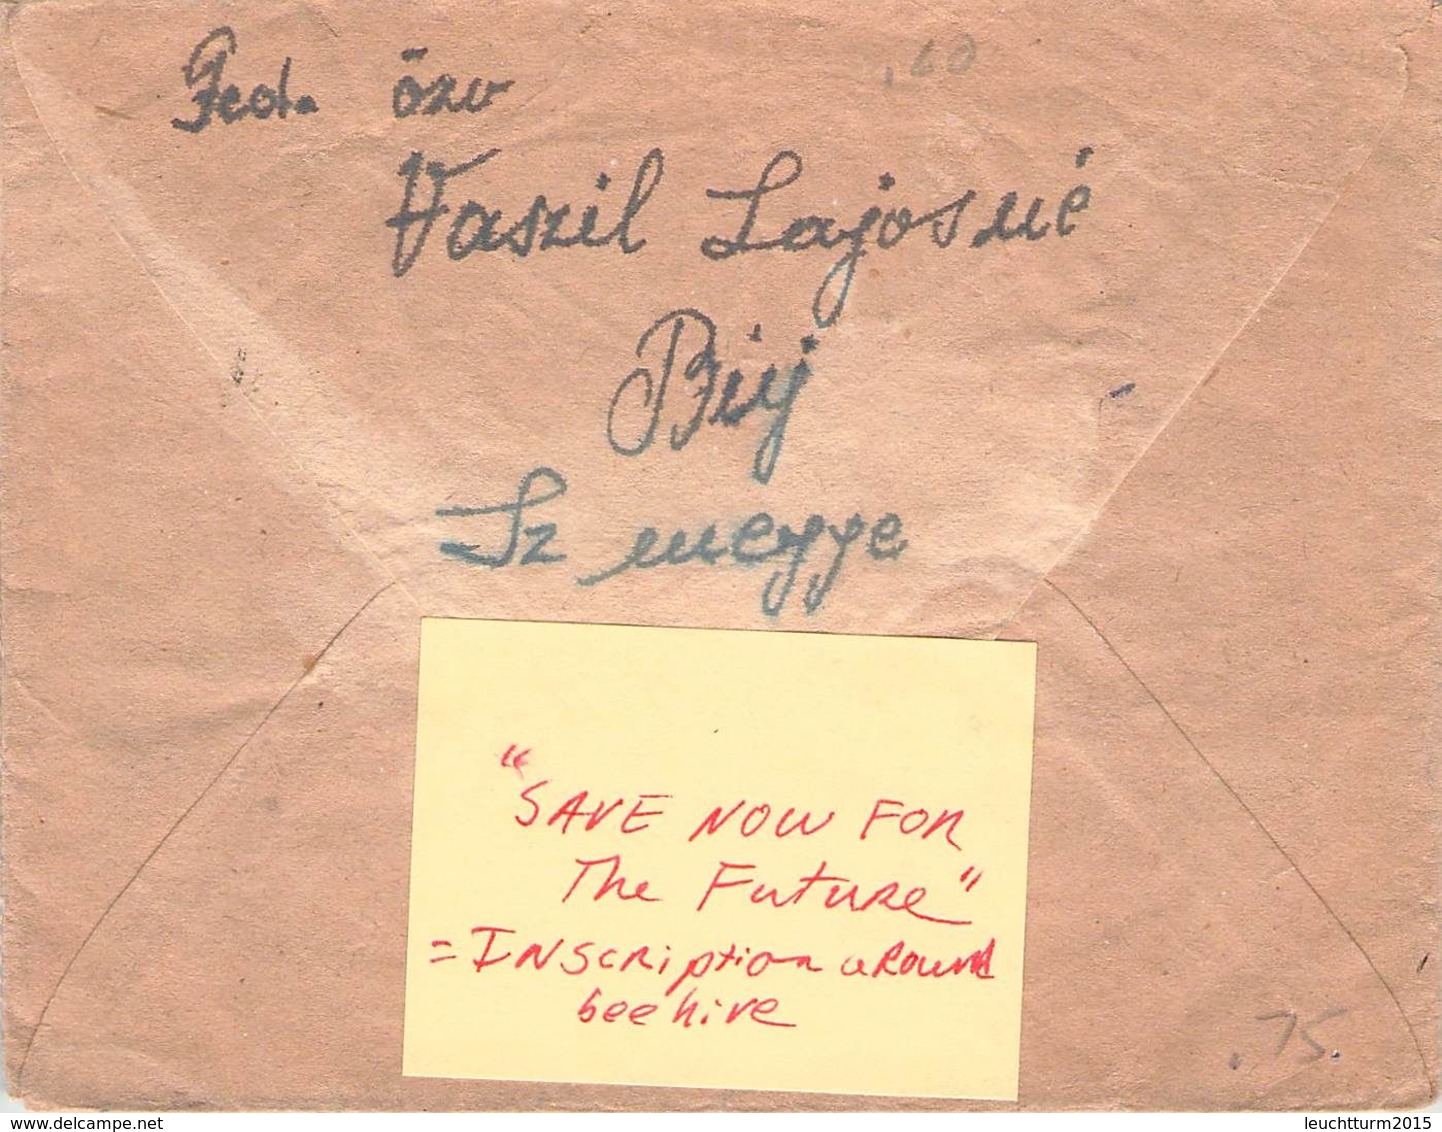 Fed. özv
Vaszil Lajosné
Büj
Sz megye
.60
"SAVE NOW FOR
The Future"
= INScription around
beehive
.75.
leuchtturm2015